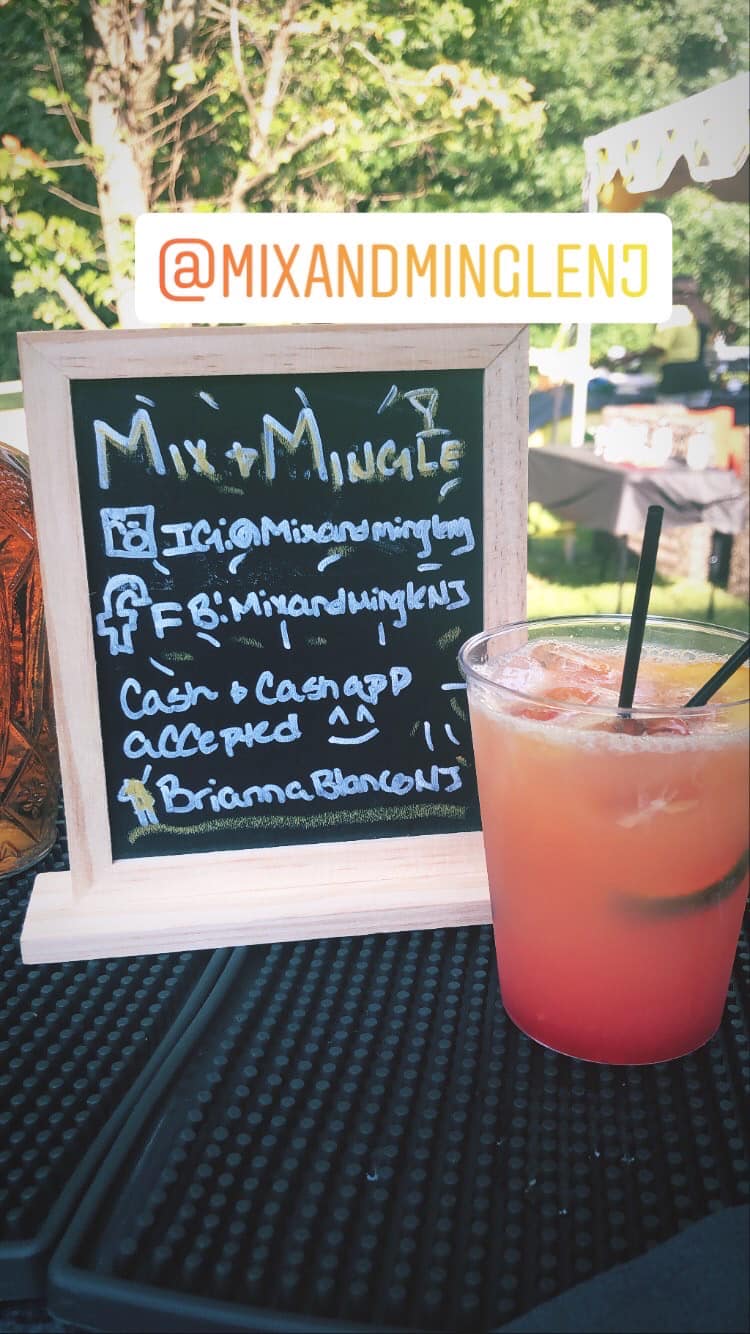 @MIXANDMINGLENJ
Mix + Mingle
IG:@Mixandminglenj
FB:MixandMingleNJ
Cash + Cashapp
accepted
$BriannaBlancoNJ